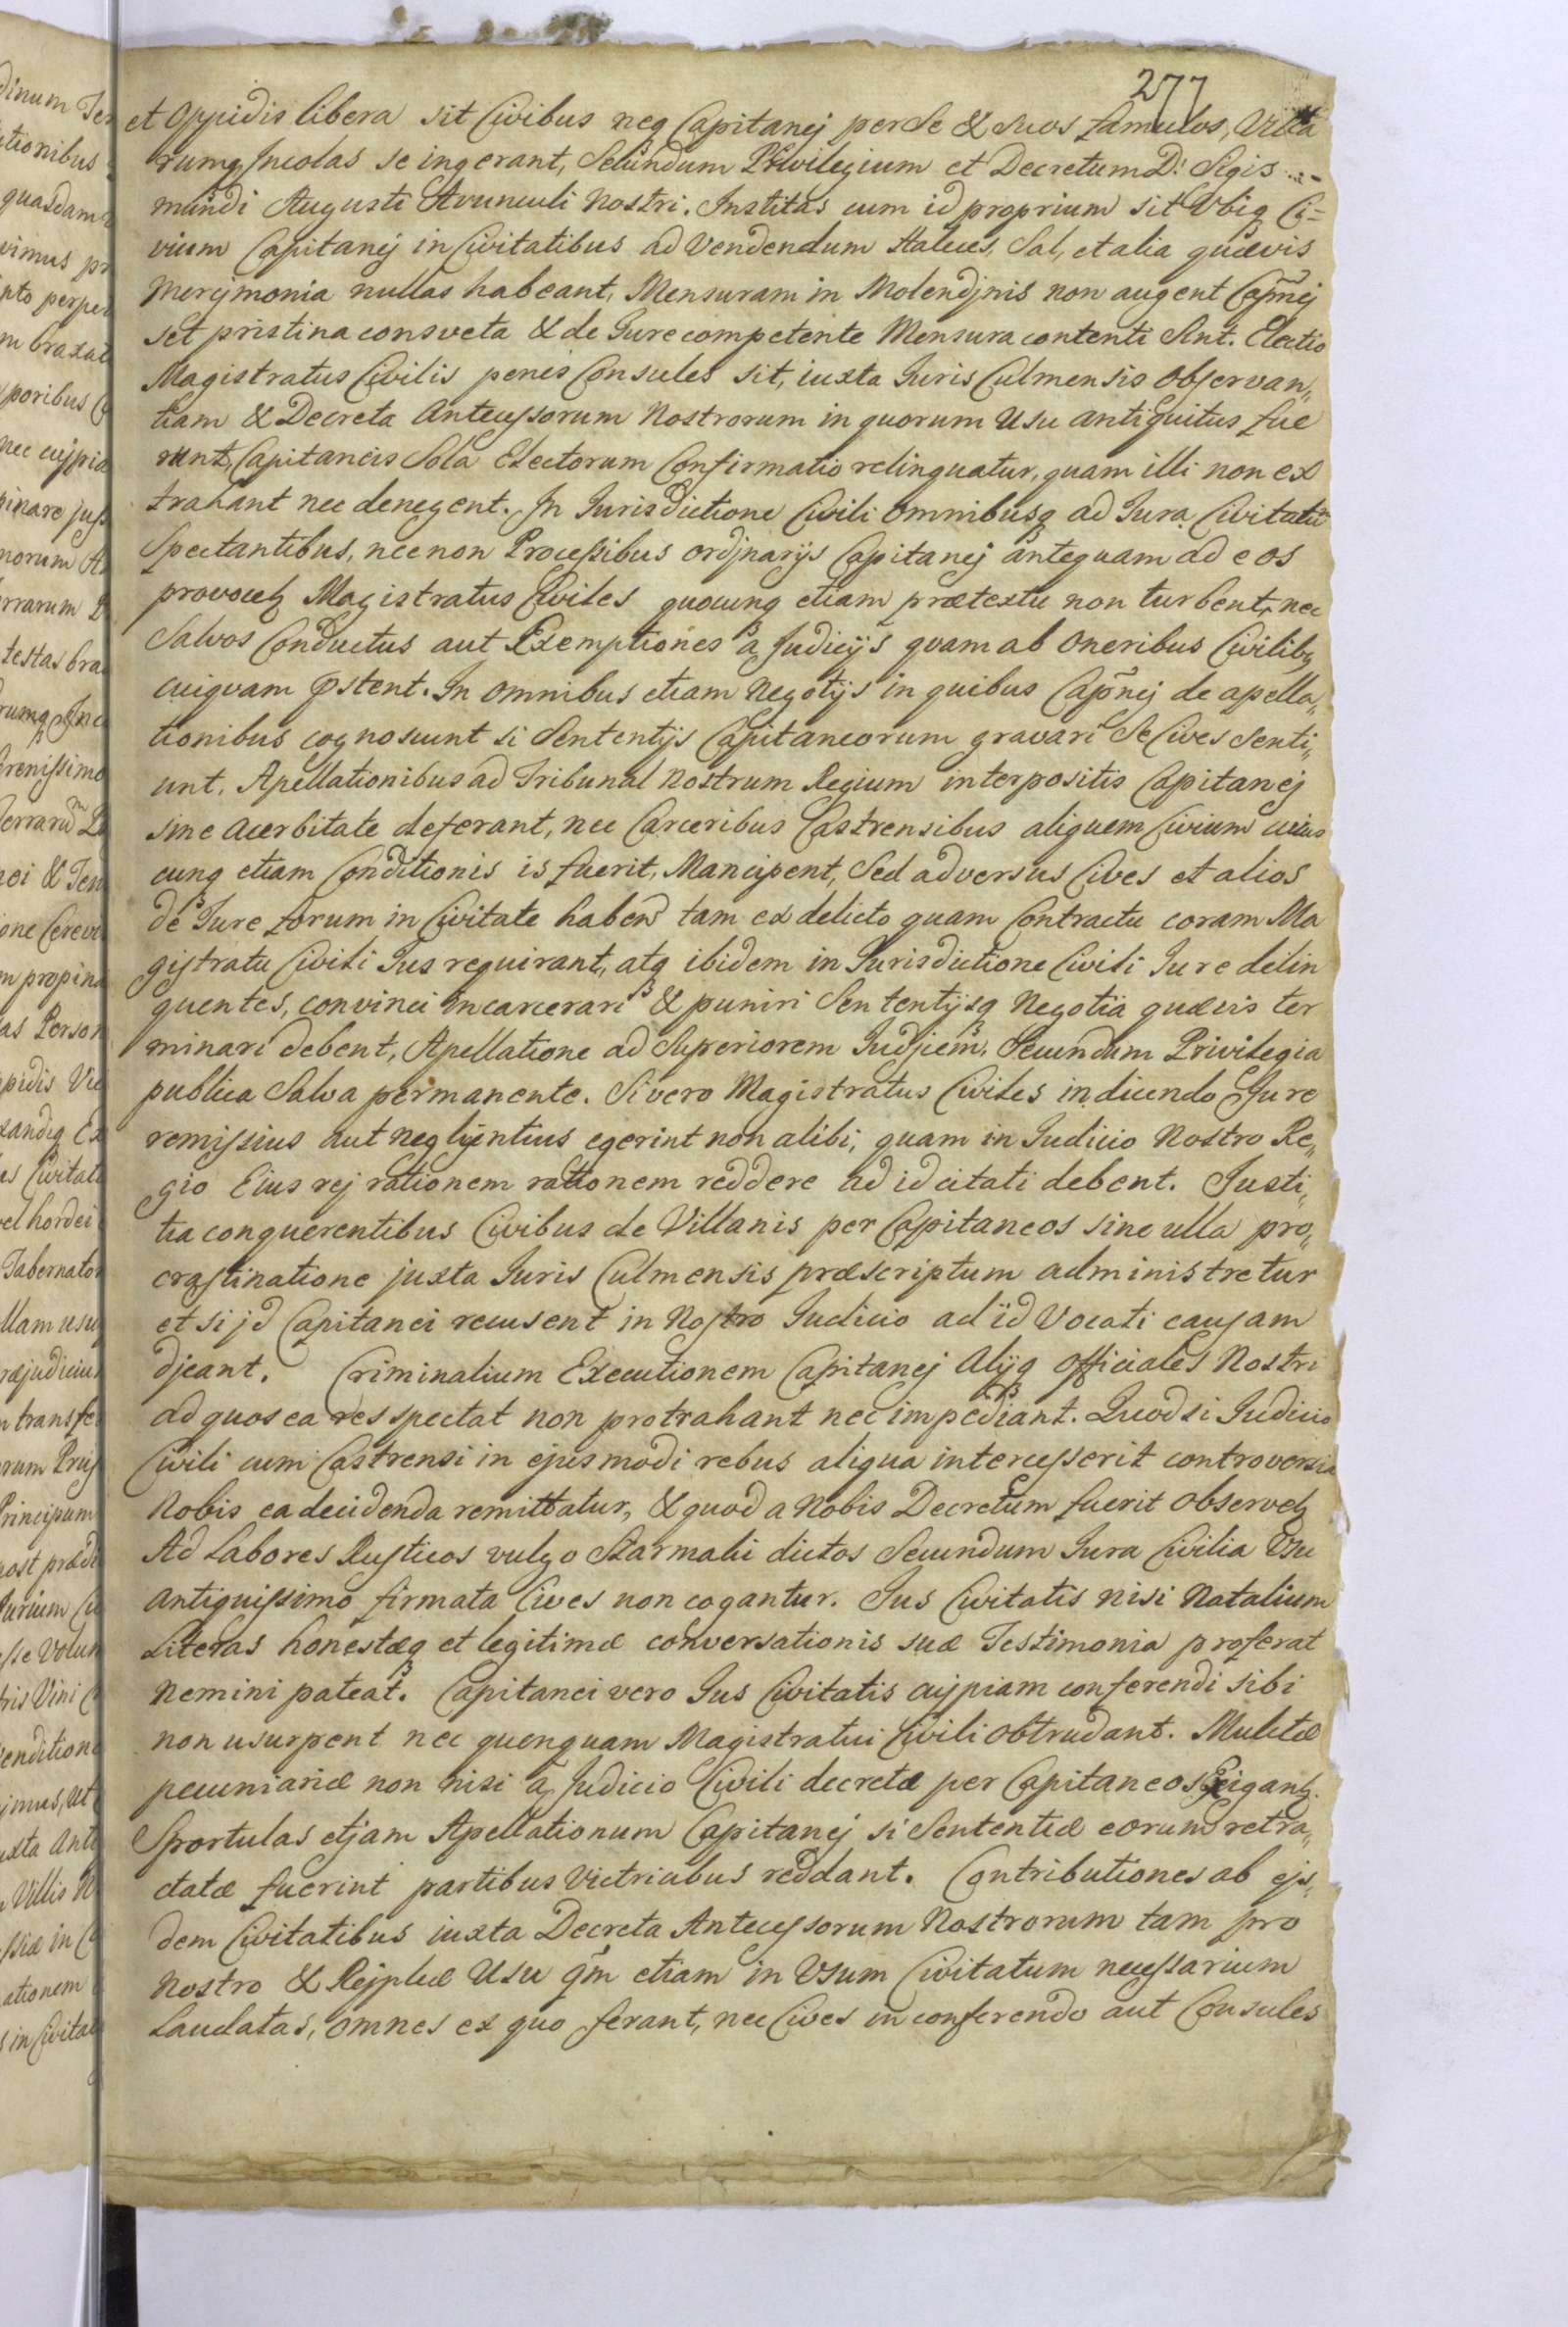 277
et Oppidis libera sit Civibus neq Capitanej per Se & Suos famulos, Villa
rumq Incolas se ingerant, Secundum Privilegium et Decretum D: Sigis
mundi Augusti Avunculi Nostri. Institas cum id proprium sit Ubiq Ci=
vium Capitanej in Civitatibus ad Vendendum Haleces, Sal, et alia quævis
Merçimonia nullas habeant, Mensuram in Molendjnis non augent Capñej
set pristina consveta & de Jure competente Mensura contenti Sint. Electio
Magistratus Civilis penes Consules sit, iuxta Juris Culmensis Observan„
tiam & Decreta Antecessorum Nostrorum in quorum Usu antiquitus fue
runt, Capitaneis Sola Electorum Confirmatio relinquatur, quam illi non ex
trahant nec denegent. In Jurisdictione Civili Omnibusq ad Jura Civitatũ
Spectantibus, nec non Processibus ordjnarijs Capitanej antequam ad eos
provocetz Magistratus Civiles quocunq etiam prætextu non turbent, nec
Salvos Conductus aut Exemptiones a Judicijs quam ab Oneribus Civilibz
cuiquam p̃stent. In omnibus etiam Negotijs in quibus Cap̃nej de apella„
tionibus cognoscunt si Sententijs Capitaneorum gravari Se Cives Senti„
unt, Apellationibus ad Tribunal Nostrum Regium interpositis Capitanej
sine Acerbitate deferant, nec Carceribus Castrensibus aliquem Civium cuius
cunq etiam Conditionis is fuerit, Mancipent, Sed adversus Cives et alios
de Jure forum in Civitate habend tam ex delicto quam Contractu coram Ma
gistratu Civili Jus requirant, atq ibidem in Jurisdictione Civili Jure delin
quentes, convinci incarcerari & puniri Sententijsq Negotia quævis ter
minari debent, Apellatione ad Superiorem Judjcem, Secundum Privilegia
publica Salva permanente. Si vero Magistratus Civiles in dicendo Jure
remissius aut negligentius egerint non alibi, quam in Judicio Nostro Re„
gio Eius rej rationem rationem reddere ad id citati debent. Justi„
tia conquerentibus Civibus de Villanis per Capitaneos sine ulla pro„
crastinatione juxta Juris Culmensis præscriptum administretur
et si jd Capitanei recusent in Nostro Judicio ad id Vocati causam
djcant. Criminalium Executionem Capitanej Alijq Officiales Nostri
ad quos ea res spectat non protrahant nec impediant. Quod si Judicio
Civili cum Castrensi in ejusmodi rebus aliqua intercesserit controversia
Nobis ea decidenda remittatur, & quod a Nobis Decretum fuerit Observetz
Ad Labores Rusticos vulgo Szarwalii dictos Secundum Jura Civilia Usu
Antiquissimo firmata Cives non cogantur. Jus Civitatis nisi Natalium
Literas honestæq et legitimæ conversationis suæ Testimonia proferat
Nemini pateat. Capitanei vero Jus Civitatis cujpiam conferendi sibi
non usurpent nec quenquam Magistratui Civili Obtrudant. Mulctæ
pecuniariæ non nisi a Judicio Civili decretæ per Capitaneos Exigantz.
Sportulas etjam Apellationum Capitanej si Sententiæ eorum retra„
ctatæ fuerint partibus Victricibus reddant. Contributiones ab ejs„
dem Civitatibus iuxta Decreta Antecessorum Nostrorum tam pro
Nostro & Rejpleæ Usu qm̃ etiam in Usum Civitatum necessarium
Laudatas, omnes ex quo ferant, nec Cives in conferendo aut Consules